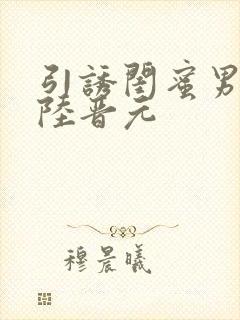 引誘閨蜜男
陸晋元
穆晨曦